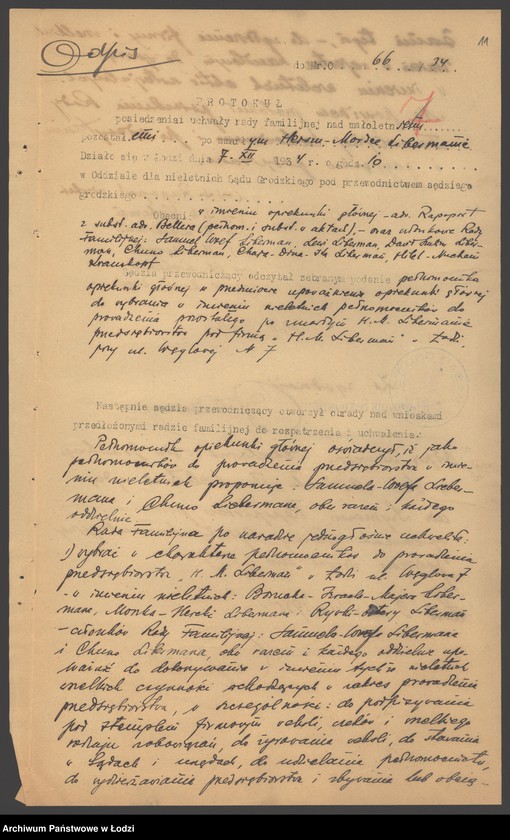 Odpis
do Nr.O 66 /34.
11
PROTOKÓŁ
posiedzenia i uchwały rady familijnej nad małoletn iemi
pozostałemi po zmarłym Hersz-Mordce Libermanie
Działo się w Łodzi dnia 7. XII 1934 r. o godz. 10
w Oddziale dla nieletnich Sądu Grodzkiego pod przewodnictwem sędziego
grodzkiego
Obecni w imieniu opiekunki głównej - adw. Rapoport
z subst. adw. Bellera (pełnom. i subst. w aktach), - oraz członkowie Rady
Familijnej: Samuel Józef Liberman, Liberman, Dawid Liber-
man, Chuno Liberman, Liberman,
Sędzia przewodniczący odczytał zebranym podanie pełnomocnika
opiekunki głównej w przedmiocie upoważnienia opiekunki głównej
do wybrania w imieniu nieletnich pełnomocników do
prowadzenia pozostałego po zmarłym H.M. Libermanie
przedsiębiorstwa pod firmą "H.M. Liberman" w Łodzi,
przy ul. Węglowej № 7
Następnie sędzia przewodniczący otworzył obrady nad wnioskami
przedłożonymi radzie familijnej do rozpatrzenia i uchwalenia.
Pełnomocnik opiekunki głównej oświadczył, iż jako
pełnomocników do prowadzenia przedsiębiorstwa w imie-
niu nieletnich proponuje: Samuela-Józefa Liber-
mana i Chuno Libermana, obu razem i każdego
oddzielnie
Rada Familijna po naradzie jednogłośnie uchwaliła:
1) wybrać w charakterze pełnomocników do prowadzenia
przedsiębiorstwa "H.M. Liberman" w Łodzi ul. Węglowa 7
- w imieniu nieletnich: Borucha-Izraela-Majera Liber-
mana, Monika-Herszka Libermana i Liberman
- członków Rady Familijnej: Samuela-Józefa Libermana
i Chuno Libermana, obu razem i każdego oddzielnie upo-
ważnić do dokonywania w imieniu tychże nieletnich
wszelkich czynności wchodzących w zakres prowadzenia
przedsiębiorstwa, w szczególności: do podpisywania
pod stemplem firmowym weksli, czeków i wszelkiego
rodzaju zobowiązań, do żyrowania weksli, do stawania
w Sądach i urzędach, do udzielania pełnomocnictw,
do wydzierżawiania przedsiębiorstwa i zbywania lub obcią-
Archiwum Państwowe w Łodzi